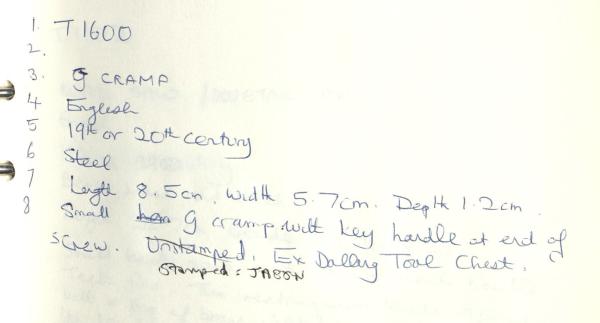 1. T1600
2.
3. G CRAMP
4 English
5 19th or 20th century
6 Steel
7 Length 8.5cm. Width 5.7cm. Depth 1.2cm.
8 Small G cramp with key handle at end of
screw. Unstamped. Ex Dallary Tool Chest.
Stamped: JABEN